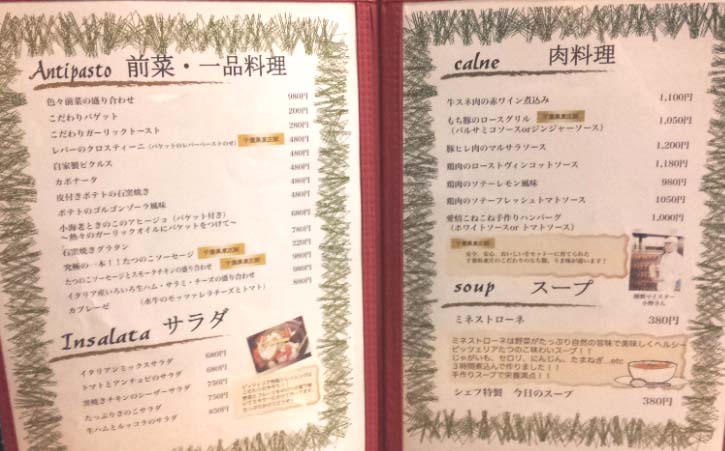 Antipasto 前菜・一品料理
色々前菜の盛り合わせ 980円
こだわりバゲット 200円
こだわりガーリックトースト 280円
レバーのクロスティーニ（バケットのレバーペーストのせ） 千葉県東庄産 480円
自家製ピクルス 480円
カポナータ 480円
皮付きポテトの石窯焼き 480円
ポテトのゴルゴンゾーラ風味 480円
小海老ときのこのアヒージョ（バケット付き） 680円
～熱々のガーリックオイルにバケットをつけて～
石窯焼きグラタン 780円
究極の一本！！たつのこソーセージ 千葉県東庄産 220円
たつのこソーセージとスモークチキンの盛り合わせ 千葉県東庄産 980円
イタリア産いろいろ生ハム・サラミ・チーズの盛り合わせ 980円
カプレーゼ （水牛のモッツァレラチーズとトマト） 880円
Insalata サラダ
イタリアンミックスサラダ 680円
トマトとアンチョビのサラダ 680円
窯焼きチキンのシーザーサラダ 750円
たっぷりきのこサラダ 750円
生ハムとルッコラのサラダ 850円
calne 肉料理
牛スネ肉の赤ワイン煮込み 1,100円
もち豚のロースグリル 千葉県東庄産 1,050円
（バルサミコソースorジンジャーソース）
豚ヒレ肉のマルサラソース 1,200円
鶏肉のローストヴィンコットソース 1,180円
鶏肉のソテーレモン風味 980円
鶏肉のソテーフレッシュトマトソース 1050円
愛情こねこね手作りハンバーグ 1,000円
（ホワイトソースor トマトソース）
千葉県東庄産
soup スープ
ミネストローネ 380円
ミネストローネは野菜がたっぷり自然の旨味で美味しくヘルシー
ピッツェリアたつのこ味わいスープ！！
じゃがいも、セロリ、にんじん、たまねぎ...etc
３時間煮込んで作りました！！
手作りスープで栄養満点！！
シェフ特製 今日のスープ 380円